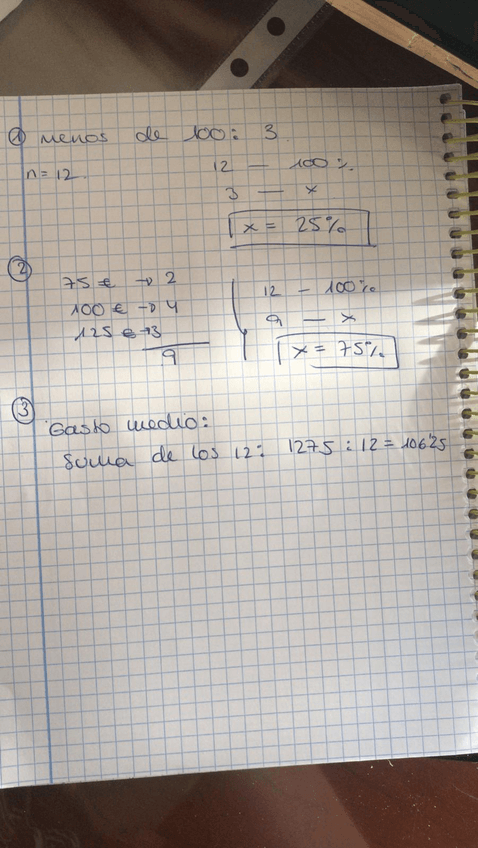 ① Menos de 100: 3
n = 12.
12 — 100%
3 — x
x = 25%
②
75 € → 2
100 € → 4
125 € → 3
9
12 — 100%
9 — x
x = 75%
③
Gasto medio:
Suma de los 12: 1275 : 12 = 106'25